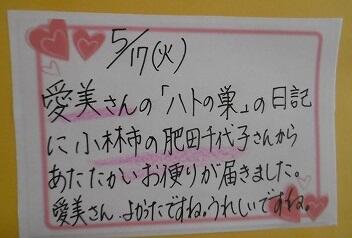 5/17(火)
愛美さんの「ハトの巣」の日記
に小林市の肥田千代子さんから
あたたかいお便りが届きました。
愛美さん よかったですね。うれしいですね。